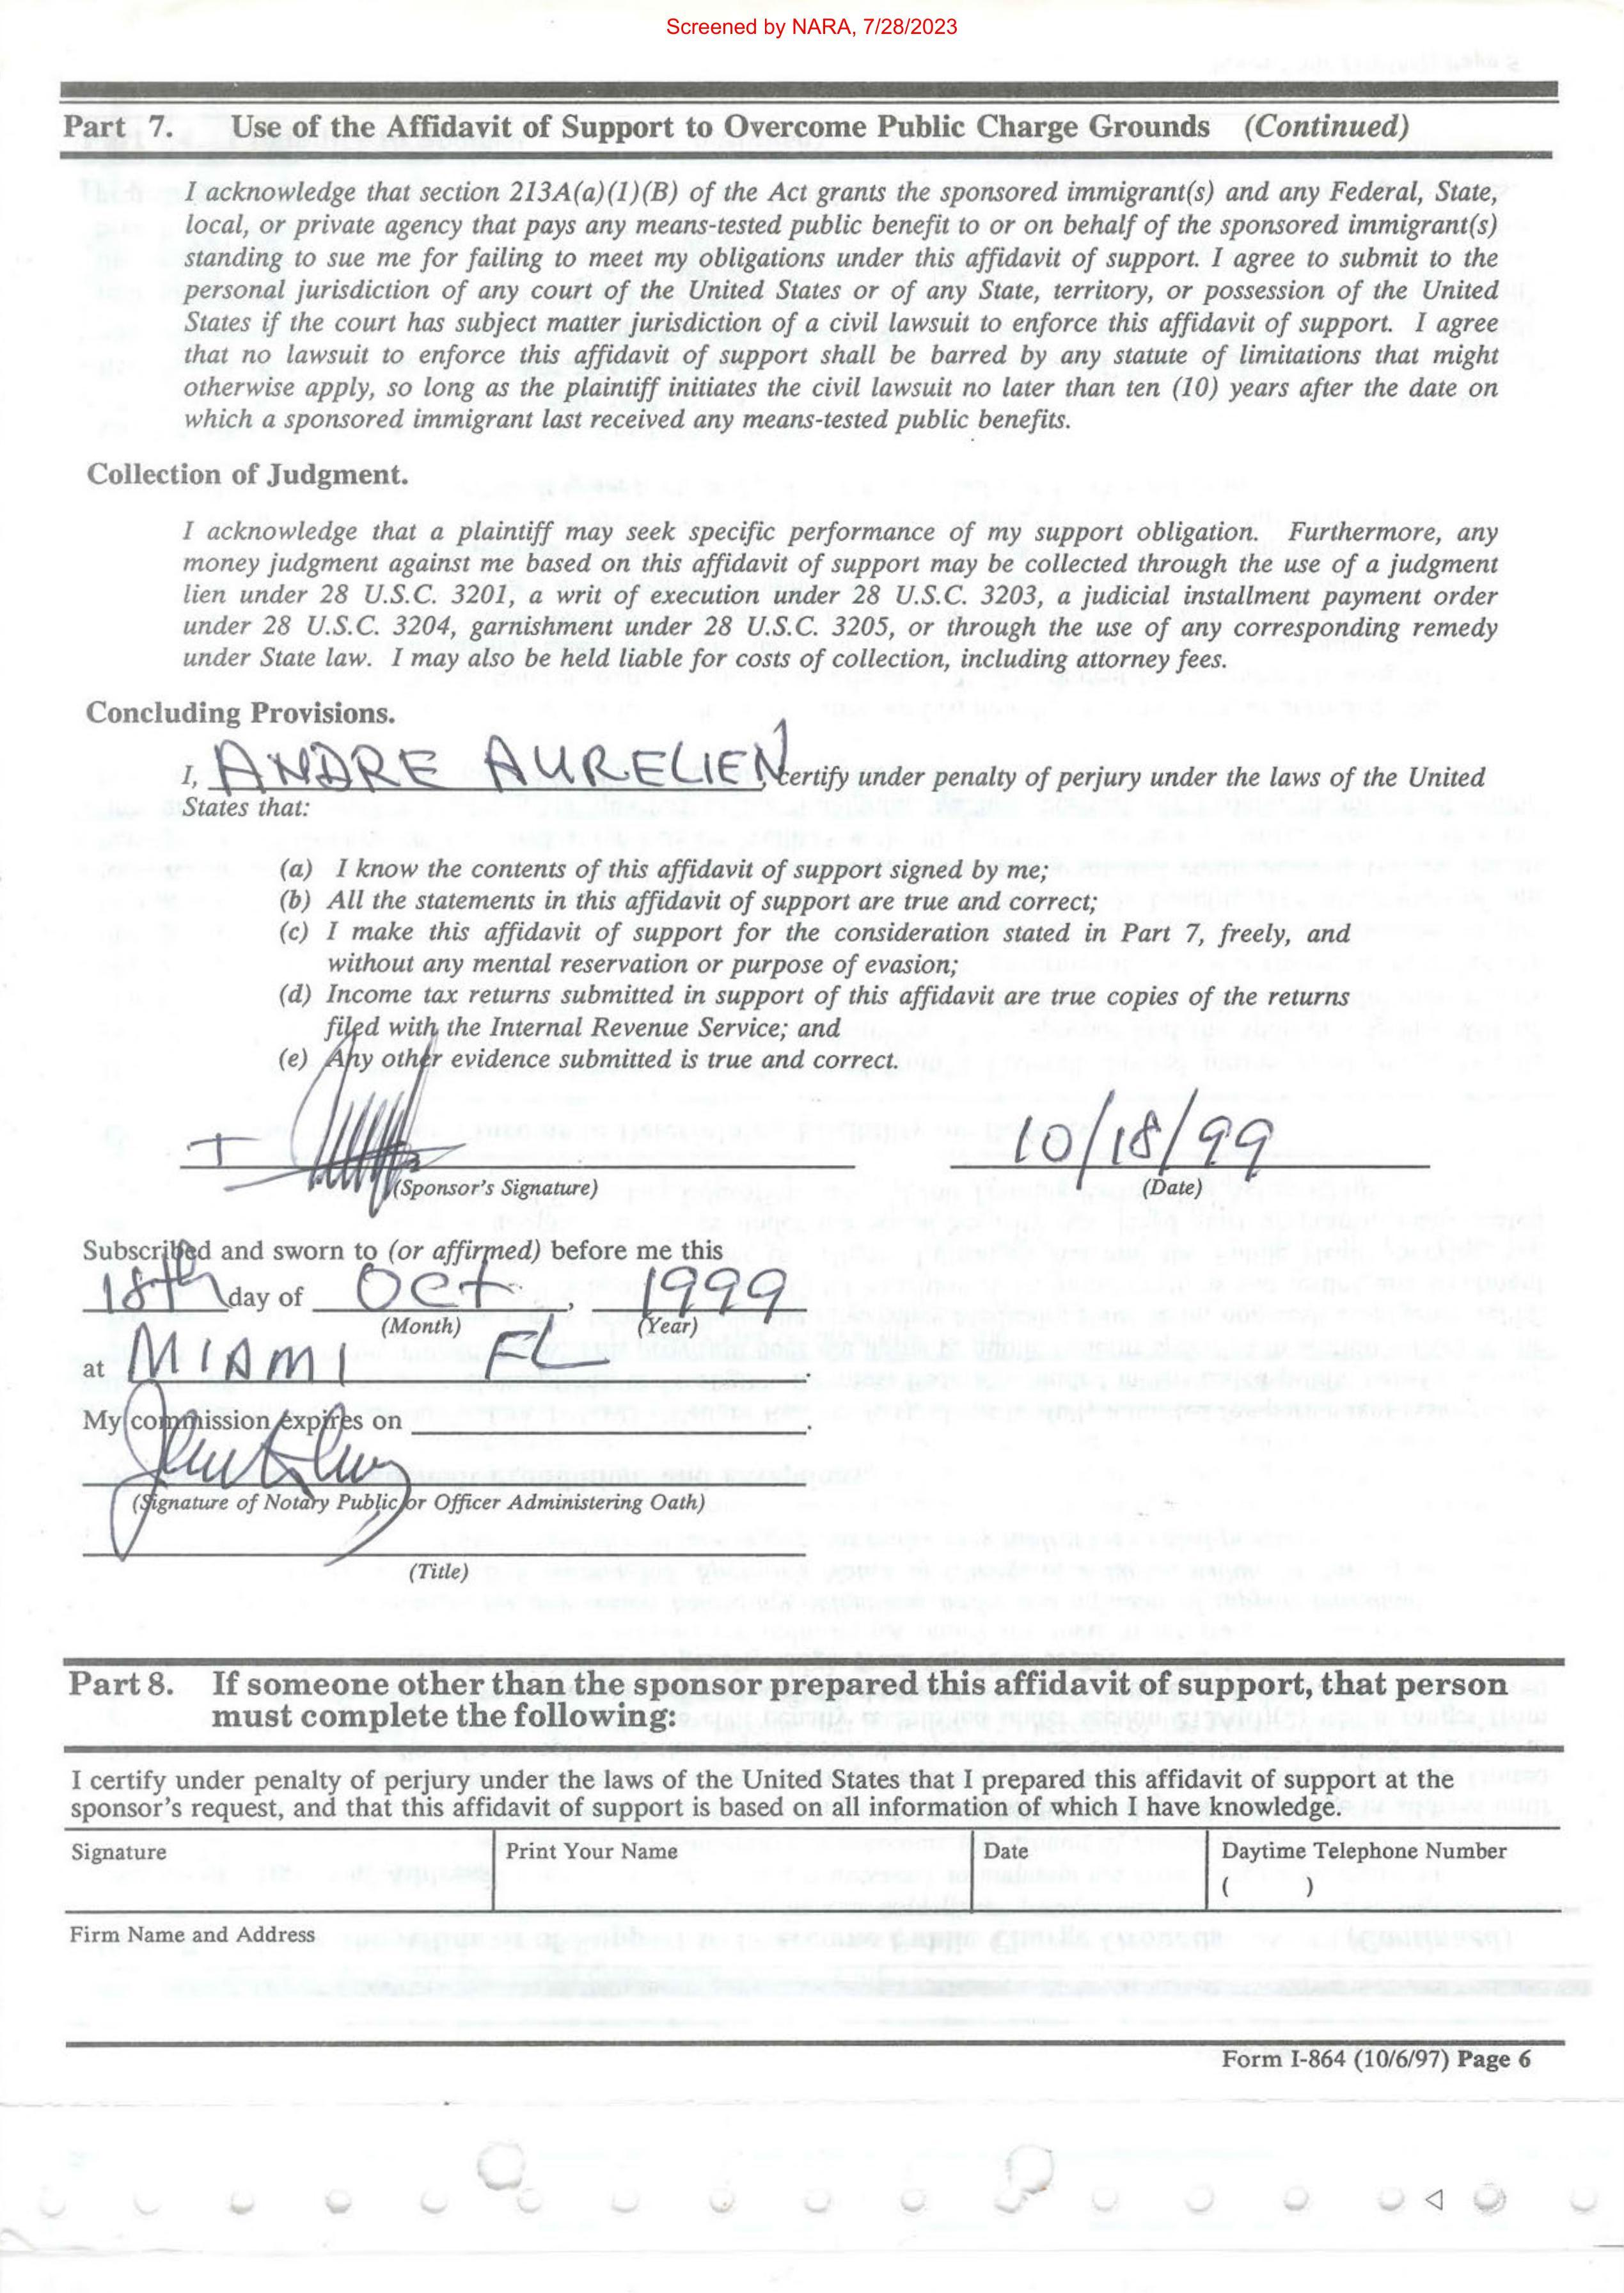 Screened by NARA, 7/28/2023
Part 7. Use of the Affidavit of Support to Overcome Public Charge Grounds (Continued)
I acknowledge that section 213A(a)(1)(B) of the Act grants the sponsored immigrant(s) and any Federal, State,
local, or private agency that pays any means-tested public benefit to or on behalf of the sponsored immigrant(s)
standing to sue me for failing to meet my obligations under this affidavit of support. I agree to submit to the
personal jurisdiction of any court of the United States or of any State, territory, or possession of the United
States if the court has subject matter jurisdiction of a civil lawsuit to enforce this affidavit of support. I agree
that no lawsuit to enforce this affidavit of support shall be barred by any statute of limitations that might
otherwise apply, so long as the plaintiff initiates the civil lawsuit no later than ten (10) years after the date on
which a sponsored immigrant last received any means-tested public benefits.
Collection of Judgment.
I acknowledge that a plaintiff may seek specific performance of my support obligation. Furthermore, any
money judgment against me based on this affidavit of support may be collected through the use of a judgment
lien under 28 U.S.C. 3201, a writ of execution under 28 U.S.C. 3203, a judicial installment payment order
under 28 U.S.C. 3204, garnishment under 28 U.S.C. 3205, or through the use of any corresponding remedy
under State law. I may also be held liable for costs of collection, including attorney fees.
Concluding Provisions.
I, ANDRE AURELIEN, certify under penalty of perjury under the laws of the United
States that:
(a) I know the contents of this affidavit of support signed by me;
(b) All the statements in this affidavit of support are true and correct;
(c) I make this affidavit of support for the consideration stated in Part 7, freely, and
without any mental reservation or purpose of evasion;
(d) Income tax returns submitted in support of this affidavit are true copies of the returns
filed with the Internal Revenue Service; and
(e) Any other evidence submitted is true and correct.
10/18/99
(Sponsor's Signature) (Date)
Subscribed and sworn to (or affirmed) before me this
18th day of Oct, 1999
(Month) (Year)
at MIAMI FL.
My commission expires on .
(Signature of Notary Public or Officer Administering Oath)
(Title)
Part 8. If someone other than the sponsor prepared this affidavit of support, that person
must complete the following:
I certify under penalty of perjury under the laws of the United States that I prepared this affidavit of support at the
sponsor's request, and that this affidavit of support is based on all information of which I have knowledge.
Signature Print Your Name Date Daytime Telephone Number
( )
Firm Name and Address
Form I-864 (10/6/97) Page 6